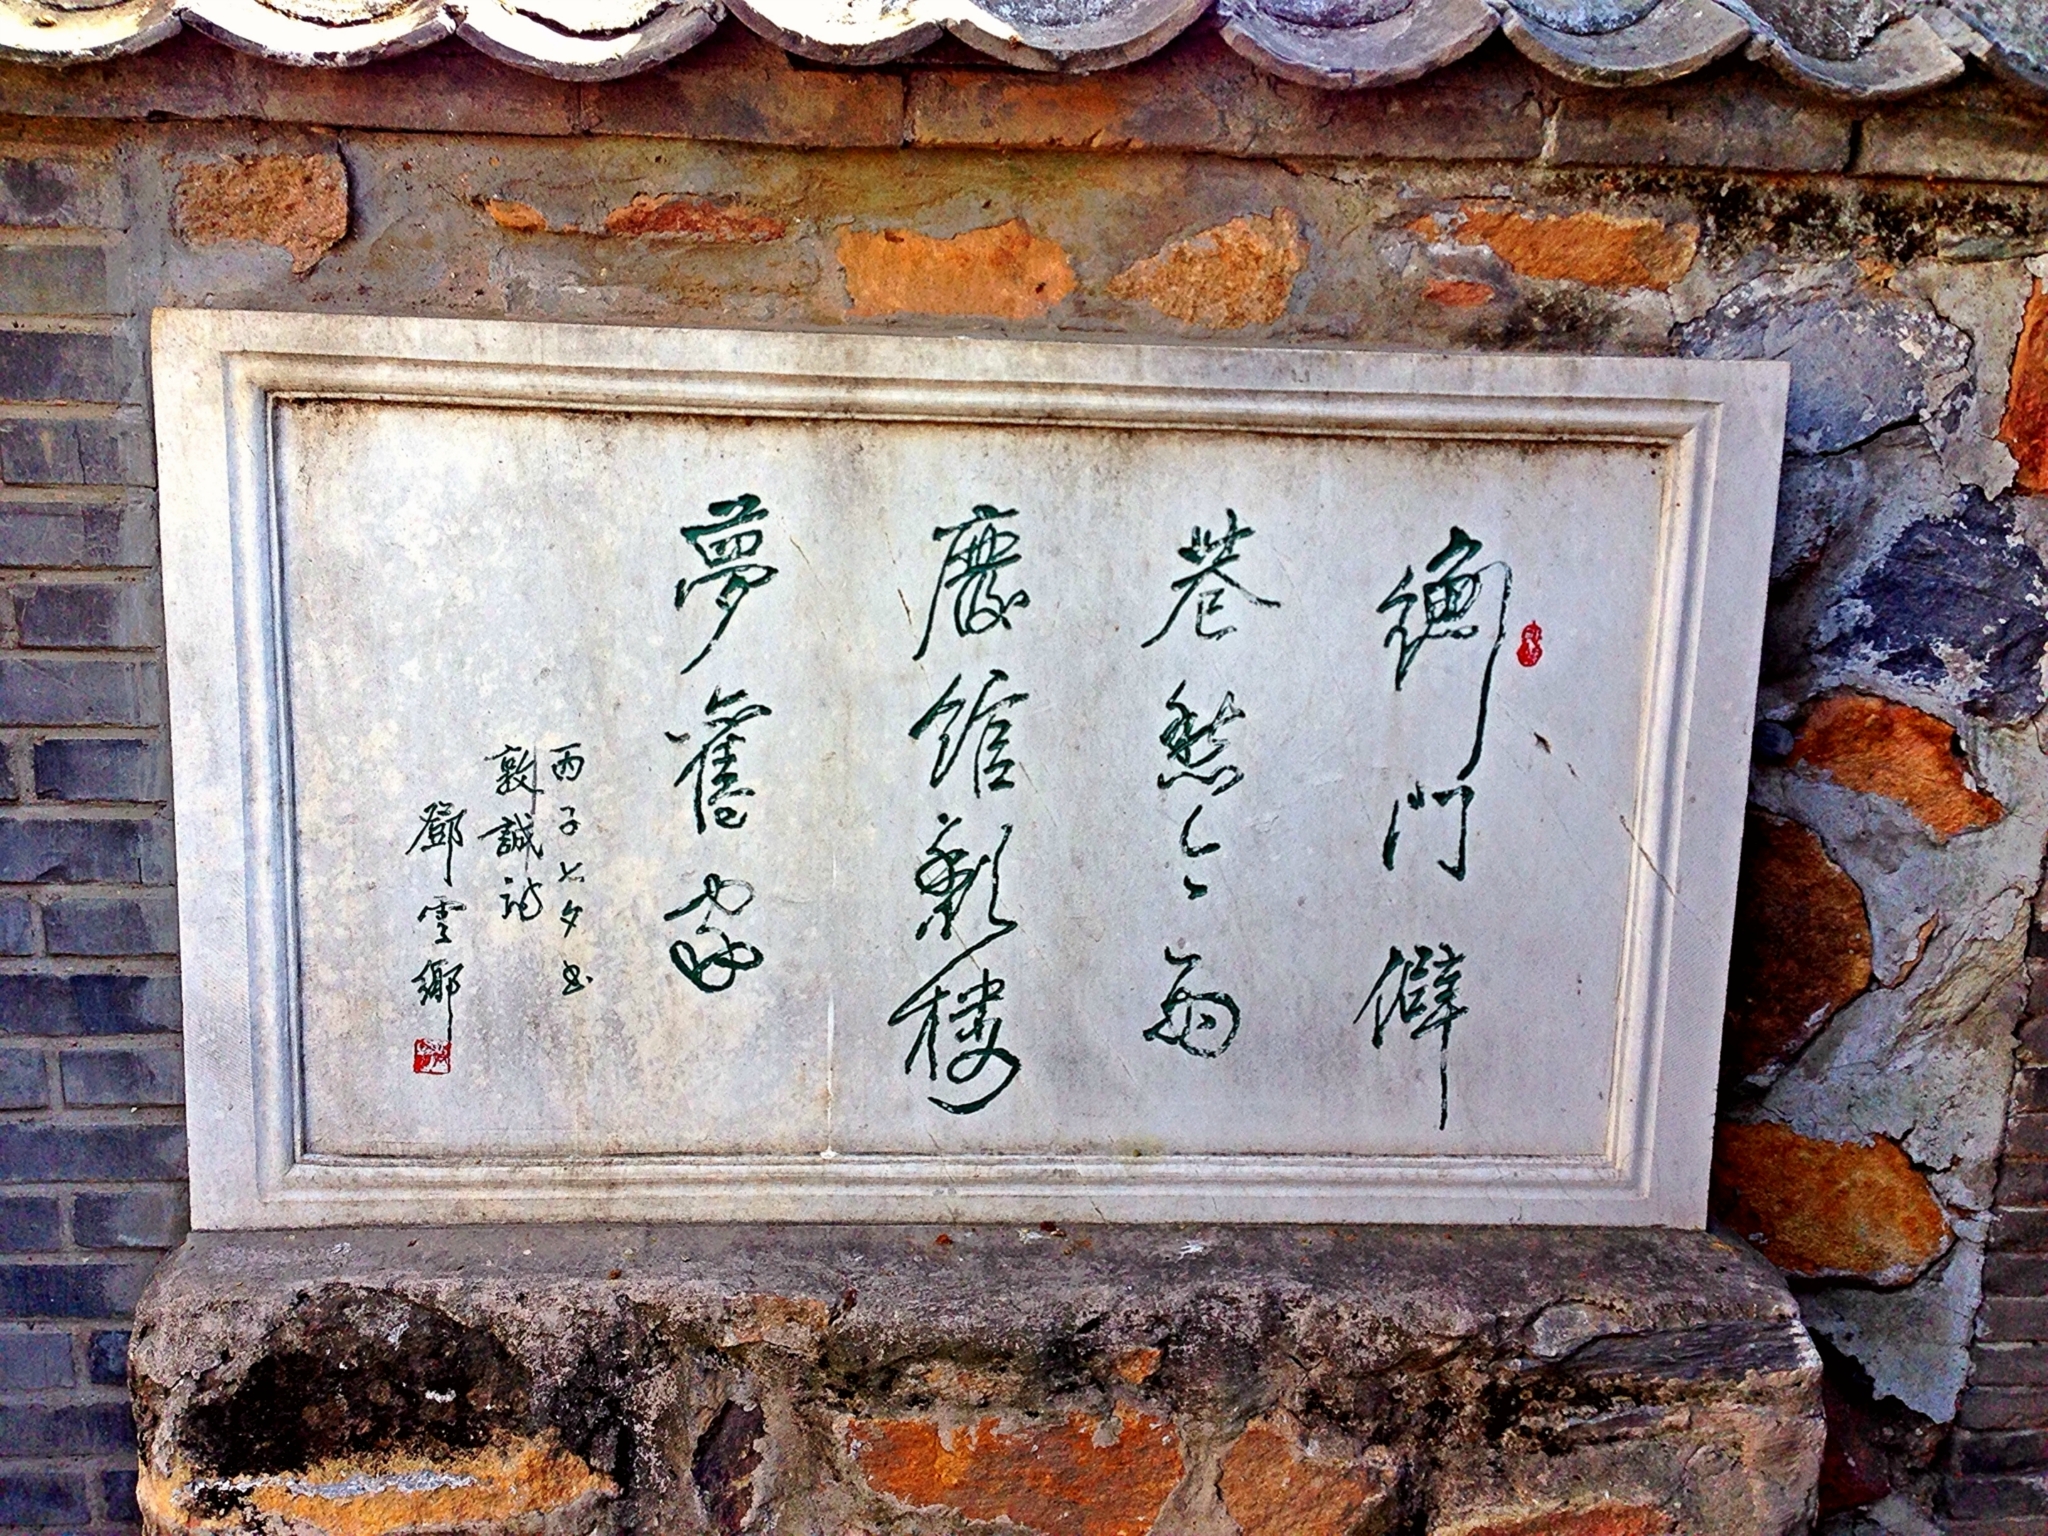 衡門僻
巷愁今雨
廢館頹樓
夢舊家
丙子七夕書
敦誠詩
鄧雲鄉